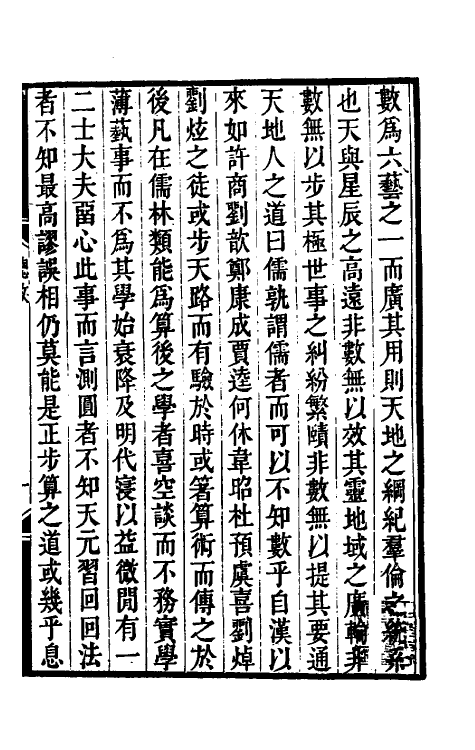 數爲六藝之一而廣其用則天地之綱紀羣倫之統系
也天與星辰之高遠非數無以效其靈地域之廣輪非
數無以步其極世事之糾紛繁賾非數無以提其要通
天地人之道曰儒孰謂儒者而可以不知數乎自漢以
來如許商劉歆鄭康成賈逵何休韋昭杜預虞喜劉焯
劉炫之徒或步天路而有驗於時或箸算術而傳之於
後凡在儒林類能爲算後之學者喜空談而不務實學
薄藝事而不爲其學始衰降及明代寖以益微閒有一
二士大夫畱心此事而言測圓者不知天元習回回法
者不知最高謬誤相仍莫能是正步算之道或幾乎息